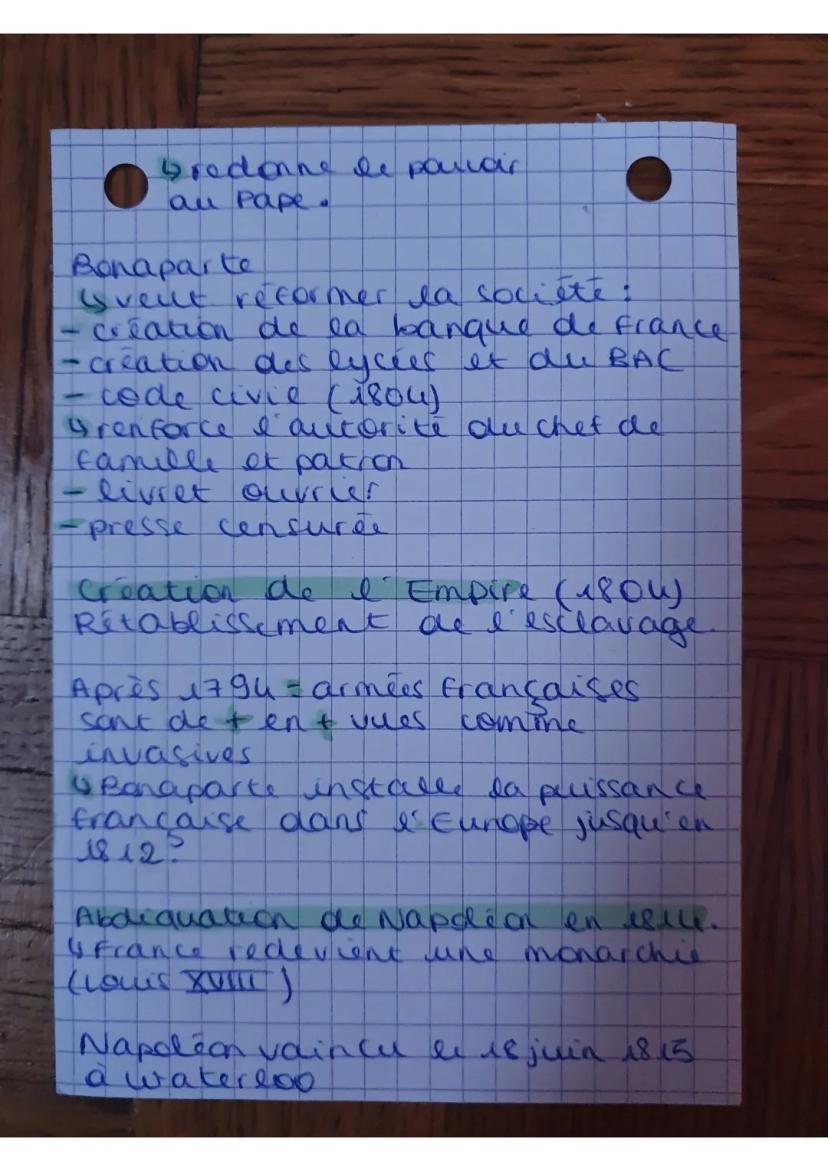 ↳ redonne le pouvoir
au Pape.
Bonaparte
↳ veut réformer la société :
- création de la banque de France
- création des lycées et du BAC
- code civil (1804)
↳ renforce l'autorité du chef de
famille et patron
- livret ouvrier
- presse censurée
Création de l'Empire (1804)
Rétablissement de l'esclavage
Après 1794 = armées françaises
sont de + en + vues comme
invasives
↳ Bonaparte installe la puissance
française dans l'Europe jusqu'en
1812?
Abdiquation de Napoléon en 1814.
↳ France redevient une monarchie
(Louis XVIII)
Napoléon vaincu le 18 juin 1815
à Waterloo